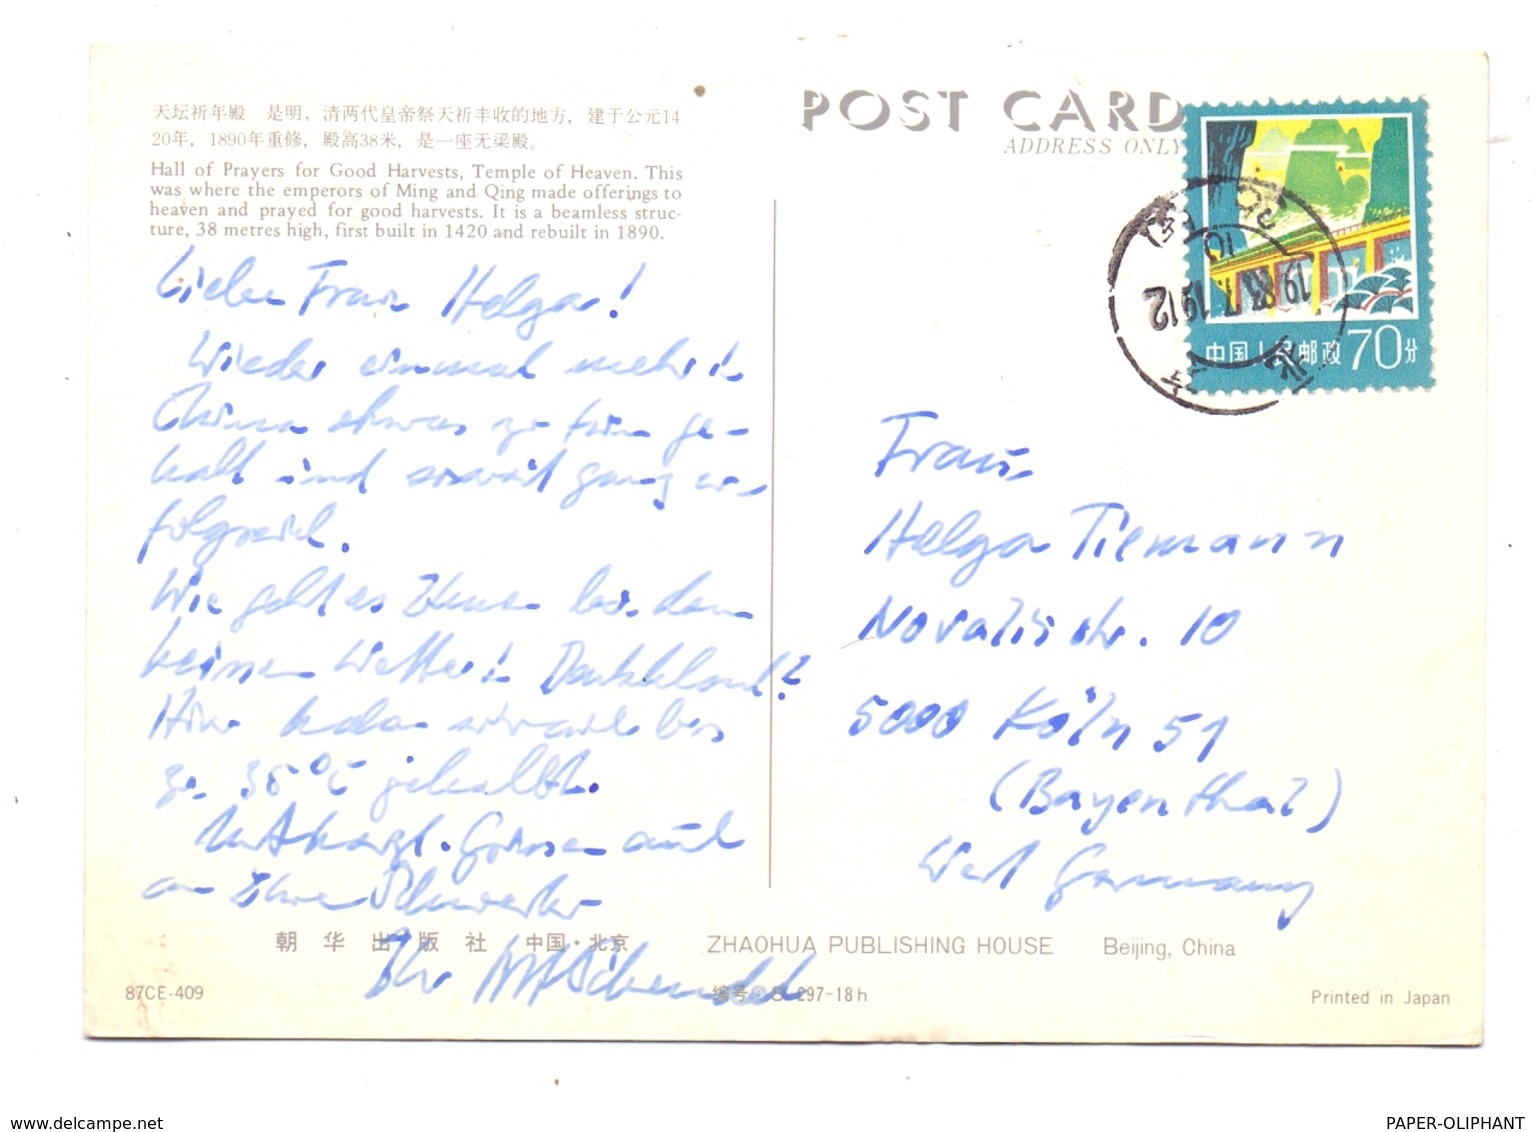 天坛祈年殿　是明，清两代皇帝祭天祈丰收的地方，建于公元14
20年，1890年重修，殿高38米，是一座无梁殿。
Hall of Prayers for Good Harvests, Temple of Heaven. This
was where the emperors of Ming and Qing made offerings to
heaven and prayed for good harvests. It is a beamless struc-
ture, 38 metres high, first built in 1420 and rebuilt in 1890.
Liebe Frau Helga!
Wieder einmal mehr in
China etwas zu tun ge-
habt und soweit ganz er-
folgreich.
Wie geht es Ihnen bei dem
Wetter in Deutschland?
Hier haben wir bis
zu 35°C gehabt.
Grüsse auch
an Ihre Schwester
Ihr
POST CARD
ADDRESS ONLY
中国人民邮政 70分
北京
Frau
Helga Tiemann
Novalisstr. 10
5000 Köln 51
(Bayenthal)
West Germany
朝华出版社　中国·北京
ZHAOHUA PUBLISHING HOUSE Beijing, China
87CE-409
编号 297-18h
Printed in Japan
www.delcampe.net
PAPER-OLIPHANT